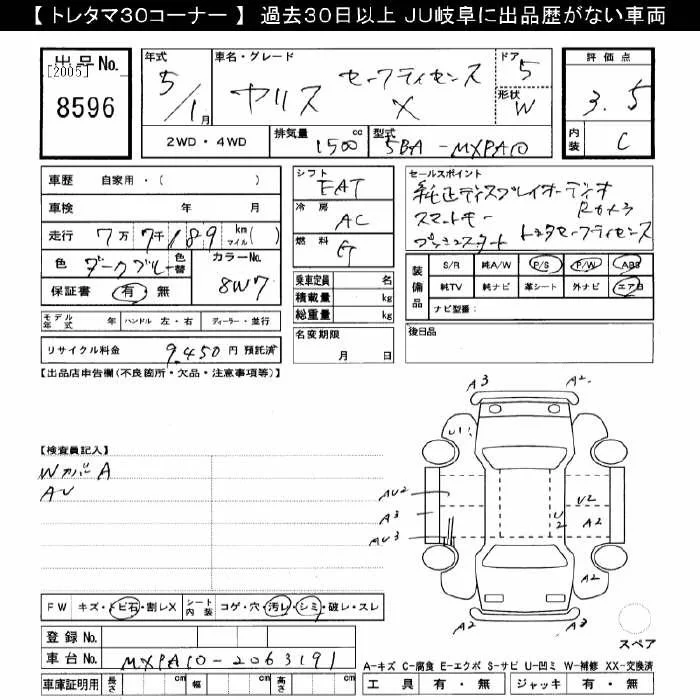 【 トレタマ30コーナー 】 過去30日以上 JU岐阜に出品歴がない車両
出品No.
[2005]
8596
年式
5/1月
車名・グレード
ヤリス セーフティセンス X
ドア 5
形状 W
評価点
3.5
内装 C
2WD・4WD
排気量 1500 cc
型式 5BA-MXPA10
車歴 自家用・( )
車検 年 月
走行 7万7千189 km マイル( )
色 ダークブルー 色替
カラーNo. 8W7
保証書 有・無
モデル年式 年 ハンドル 左・右 ディーラー・並行
リサイクル料金 9,450円 預託済
シフト FAT
冷房 AC
燃料 G
乗車定員 名
積載量 kg
総重量 kg
名変期限
月 日
セールスポイント
純正ディスプレイオーディオ
スマートキー Rカメラ
プッシュスタート トヨタセーフティセンス
装備品
S/R 純A/W P/S P/W ABS
純TV 純ナビ 革シート 外ナビ エアB
ナビ型番:
後日品
【出品店申告欄(不良箇所・欠品・注意事項等)】
【検査員記入】
Wガラス A
AU
A3 A2
U1
AU2 U2
A3 U2 A2
AU3
A2
A2
スペア
FW キズ・トビ石・割レX
シート内装 コゲ・穴・汚レ・シミ・破レ・スレ
登録No.
車台No. MXPA10-2063191
車庫証明用 長さ cm 幅 cm 高さ cm
A-キズ C-腐食 E-エクボ S-サビ U-凹ミ W-補修 XX-交換済
工具 有・無 ジャッキ 有・無